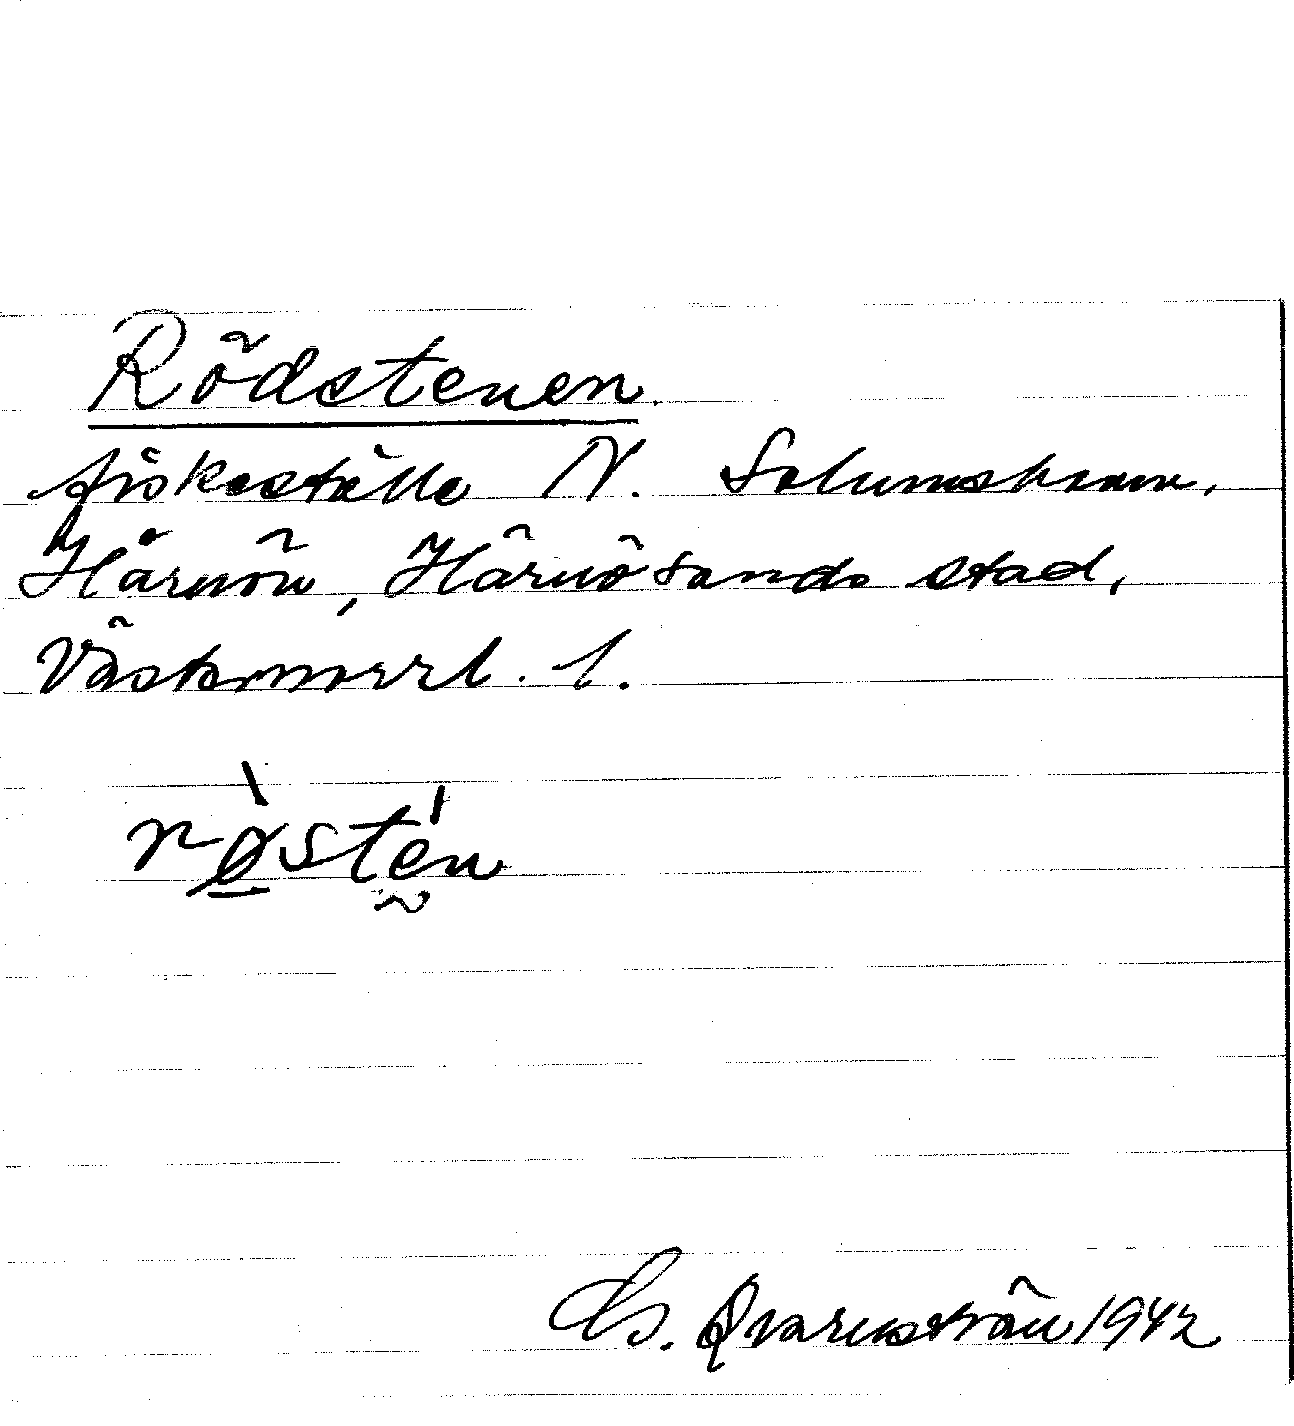 Rödstenen.
fiskeställe N. Solumshamn,
Härnön, Härnösands stad,
Västernorrl. l.
rø̱̀stén̰
G. Qvarnström 1942